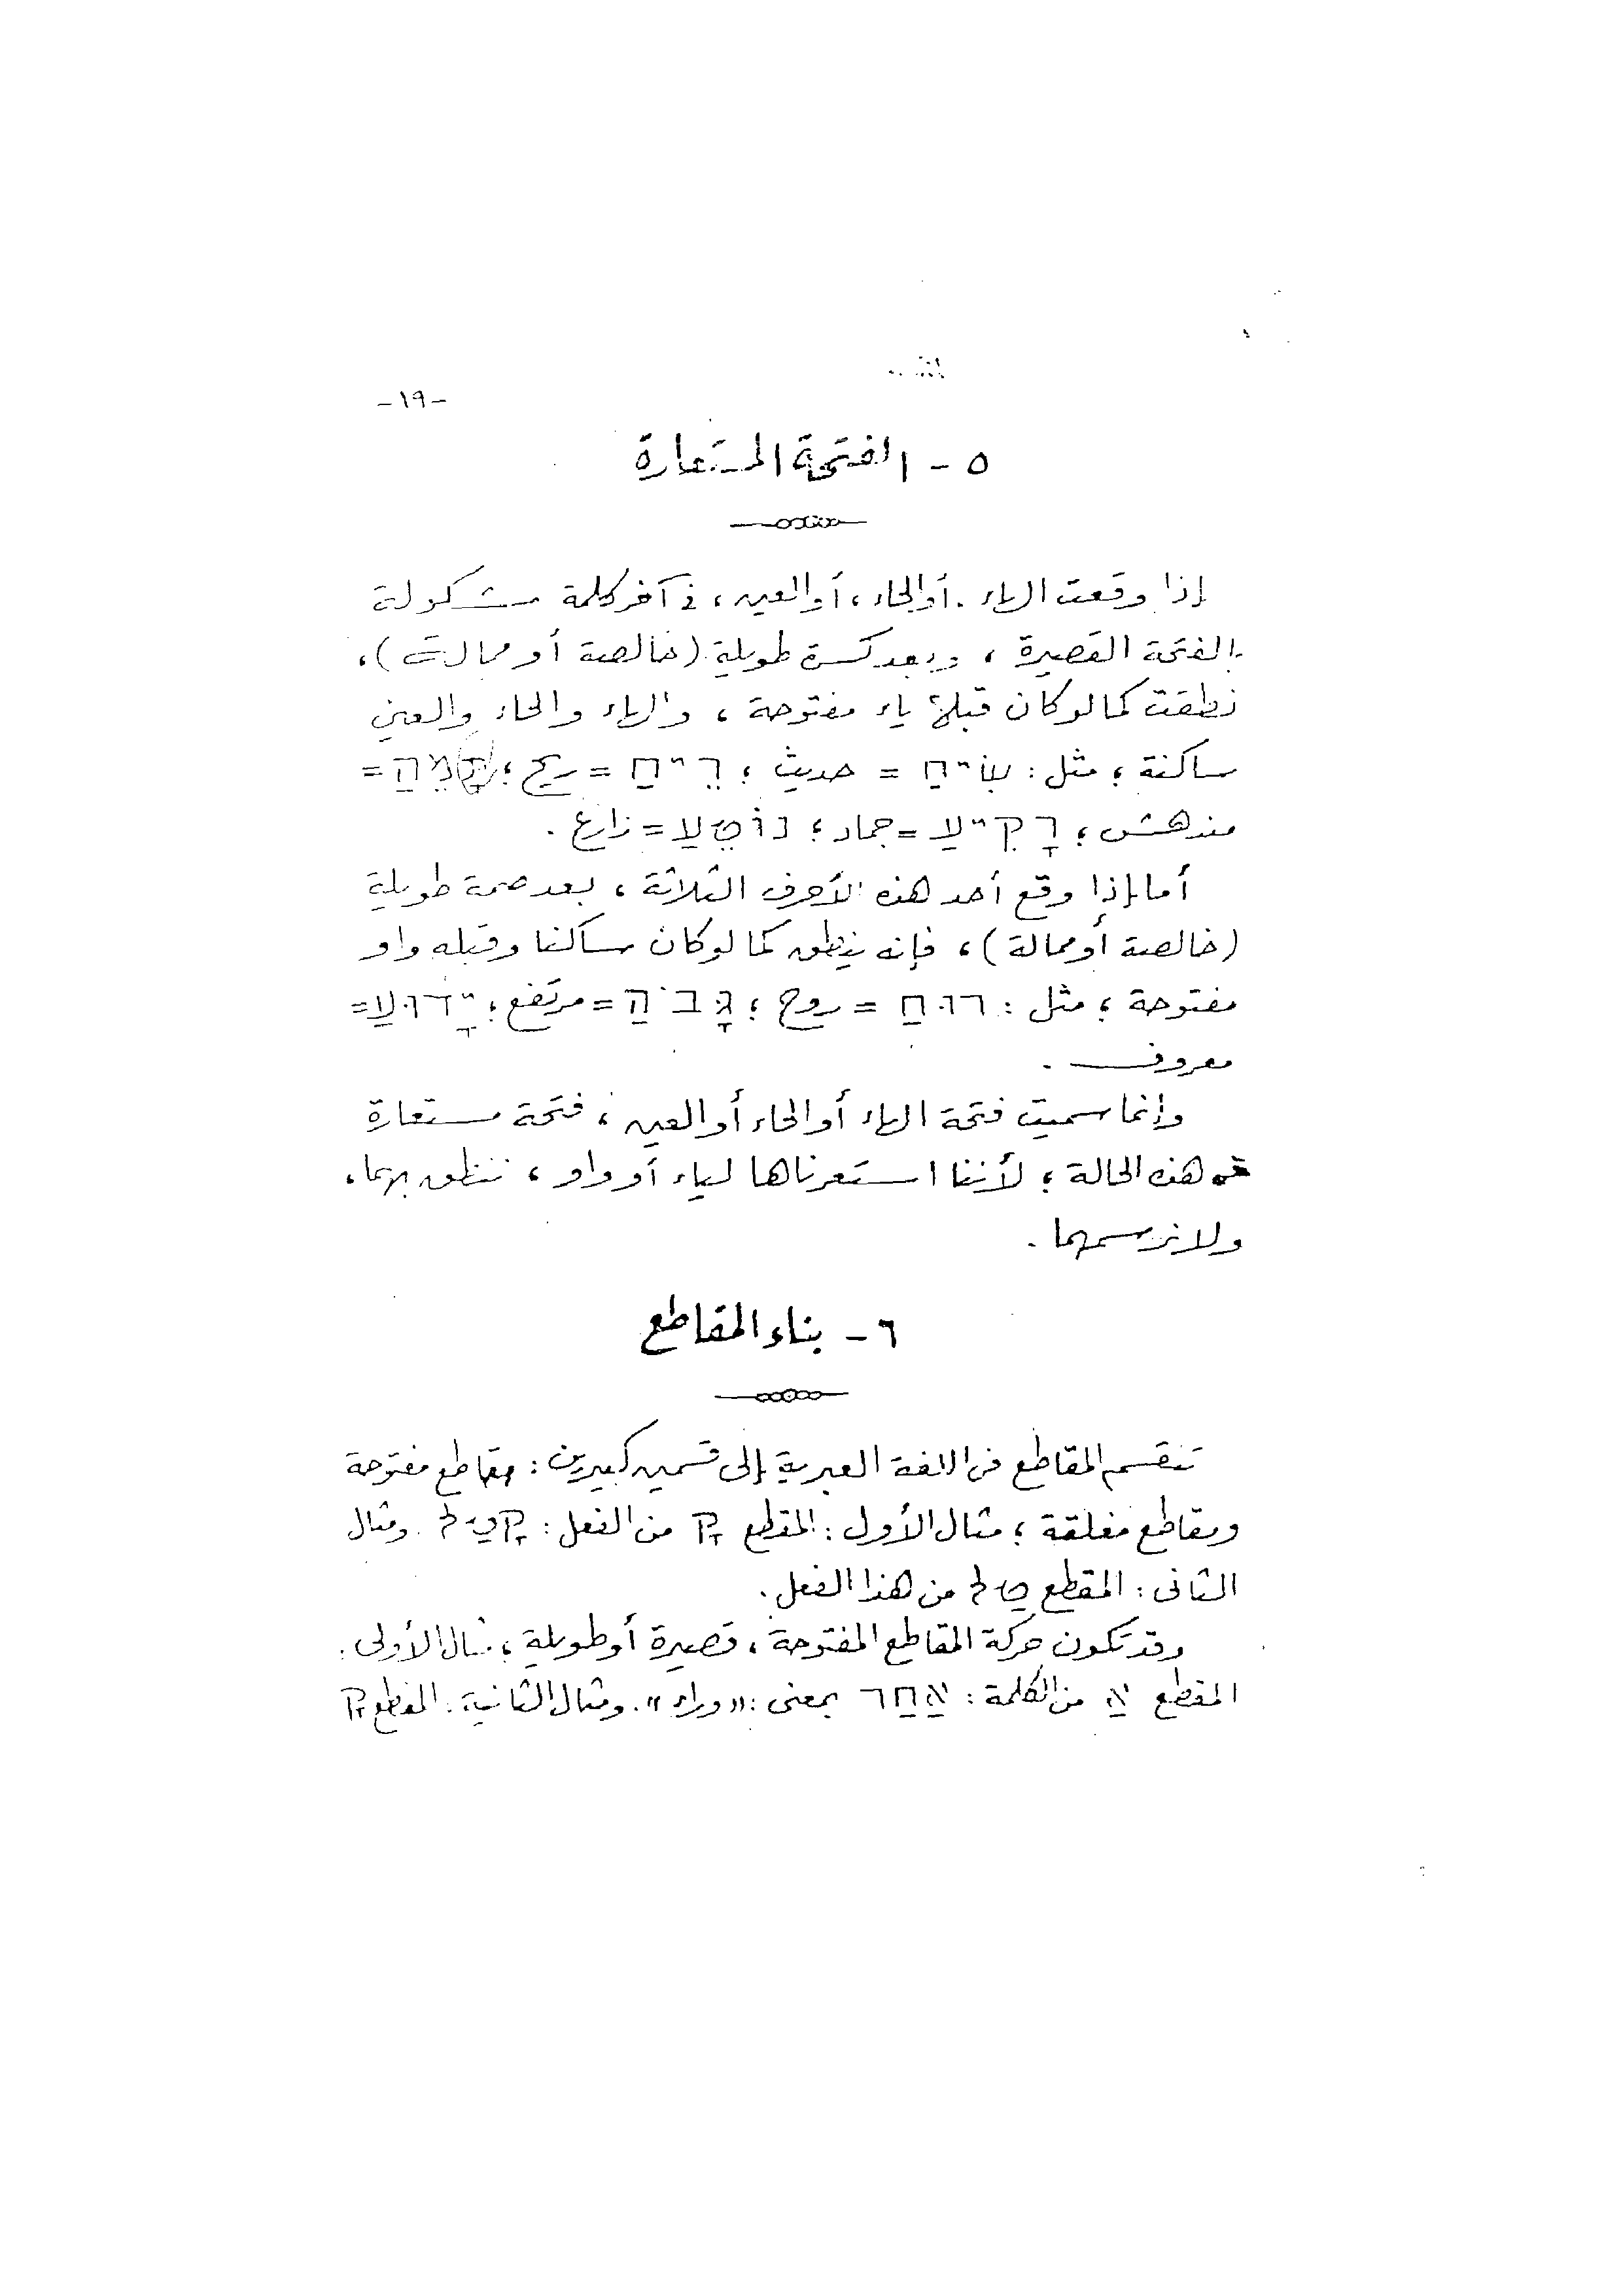 -١٩-
٥ - الفتحة المستعارة
إذا وقعت الهاء، أو الحاء، أو العين، في آخر كلمة مشكولة
بالفتحة القصيرة، وبعد كسرة طويلة (خالصة أو ممالة)،
نطقت كما لو كان قبلها ياء مفتوحة، والهاء والحاء والعين
ساكنة؛ مثل: שִׂיחַ = حديث؛ רֵיחַ = ريح؛ תָּמֵהַּ =
مندهش؛ רָקִיעַ = جماد؛ נוֹטֵעַ = زارع.
أما إذا وقع أحد هذه الأحرف الثلاثة، بعد ضمة طويلة
(خالصة أو ممالة)، فإنه ينطق كما لو كان ساكنا وقبله واو
مفتوحة؛ مثل: רוּחַ = روح؛ גָּבֹהַּ = مرتفع؛ יָדוּעַ =
معروف.
وإنما سميت فتحة الهاء أو الحاء أو العين، فتحة مستعارة
في هذه الحالة؛ لأننا استعرناها لياء أو واو، ننطق بهما،
ولا نرسمهما.
٦ - بناء المقاطع
تنقسم المقاطع في اللغة العبرية إلى قسمين كبيرين: مقاطع مفتوحة
ومقاطع مغلقة؛ مثال الأول: المقطع קָ من الفعل: קָטַל ومثال
الثاني: المقطع טַל من هذا الفعل.
وقد تكون حركة المقاطع المفتوحة، قصيرة أو طويلة؛ مثال الأولى:
المقطع אַ من الكلمة: אַחַר بمعنى: «وراء». ومثال الثانية: المقطع קָ